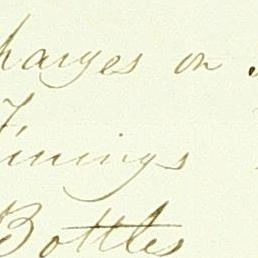 harges on
Finings
Bottles